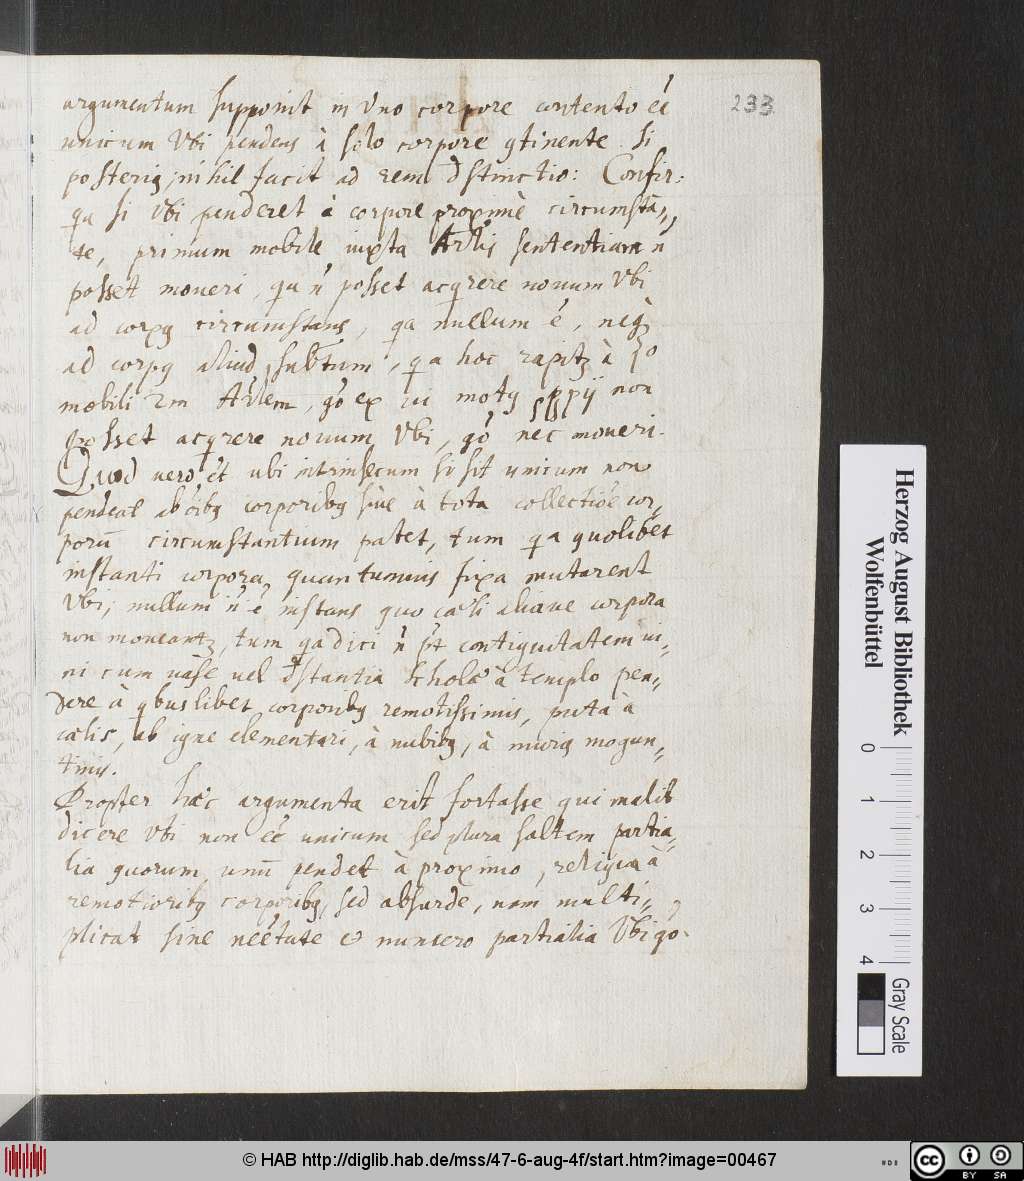 233
argumentum supponit in Uno corpore contento éé
unicum Ubi pendens à solo corpore 9tinente. Si
posteriq; nihil facit ad rem dstinctio: Confir:
qa si Ubi penderet à corpore proximè circumstà„
te, primum mobile iuxta Arlis sententiam ń
posset moveri, qa ń posset acqrere novum Ubi
ad corpq circumstans, qa nullum é, neq
ad corpq aliud subtum, qa hoc rapitr à 1o
mobili 2m Arlem, gò ex vi motq ppij non
posset acqrere novum Ubi, gò nec moveri.
Quod verò et ubi intrinsecum si sit unicum non
pendeat ab oibq corporibq sive à tota collectioē cor„
porū circumstantium patet, tum qa quolibet
instanti corpora quantumvis fixa mutarent
Ubi, nullum ń é instans quo caeli aliaue corpora
non moveantr, tum qa dici ń pt contiguitatem vi„
ni cum vase vel dstantia scholae à templo pen„
dere à qbuslibet corporibq remotissimis, puta à
caelis, ab igne elementari, à nubibq, à muris mogun„
tinis.
Propter haec argumenta erit fortasse qui malit
dicere Ubi non éé unicum sed plura saltem partia„
lia quorum unū pendet à proximo, reliqua à
remotioribq corporibq, sed absurdè, nam multi„
plicat sine neētate & numero partialia Ubi gò
Herzog August Bibliothek
Wolfenbüttel
0 1 2 3 4
Gray Scale
© HAB http://diglib.hab.de/mss/47-6-aug-4f/start.htm?image=00467
cc BY SA